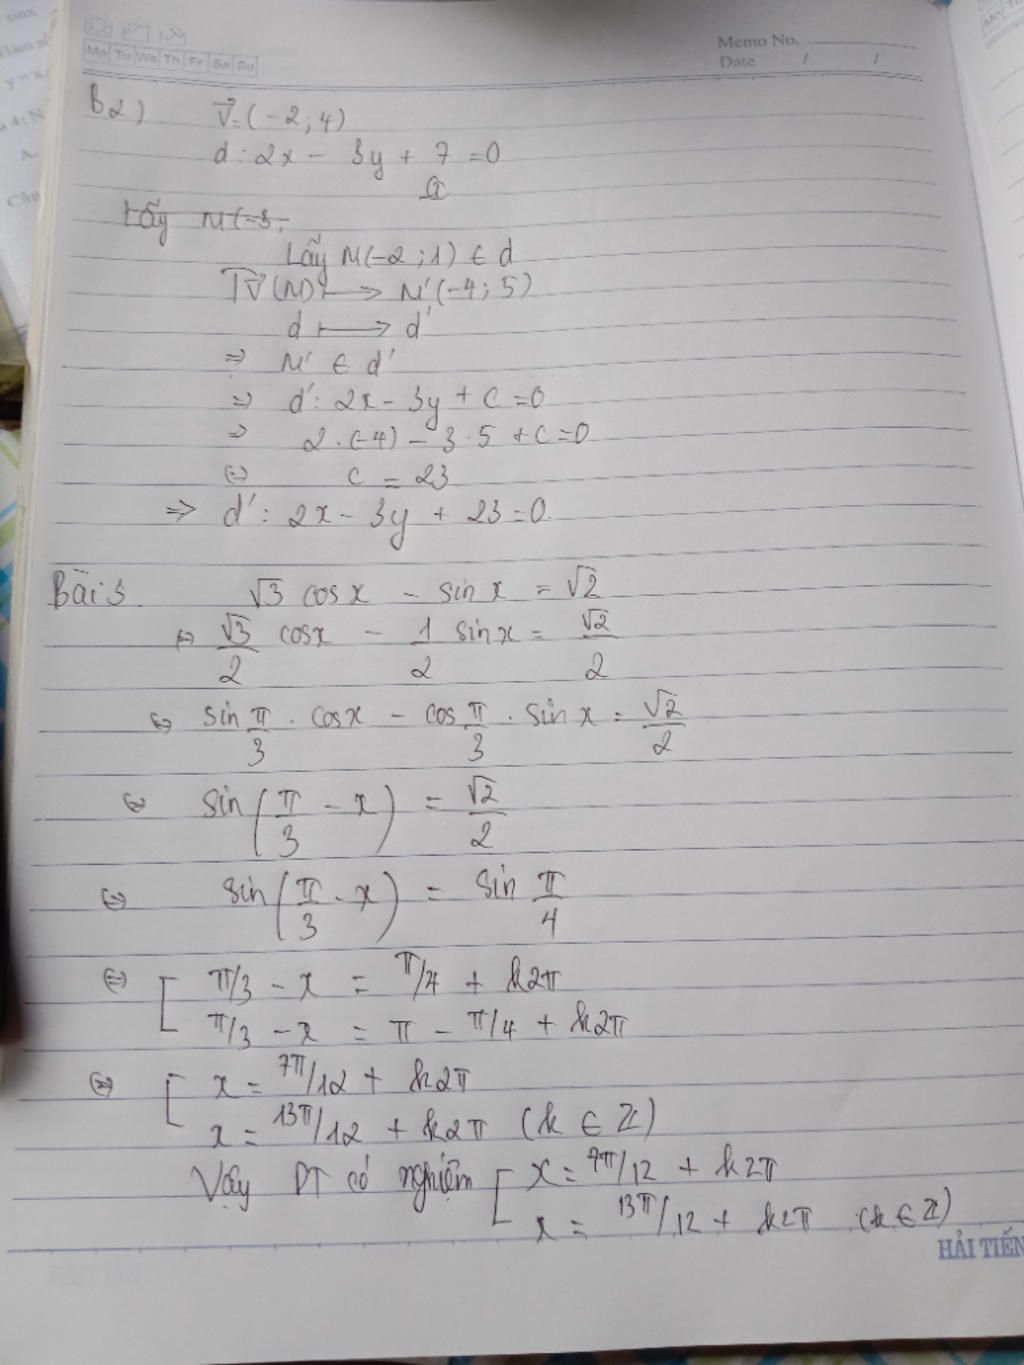 Memo No.
Mo Tu We Th Fr Sa Su
Date / /
B2) V⃗=(-2;4)
d: 2x - 3y + 7 = 0
Lấy M(-3;
Lấy M(-2;1) ∈ d
TV⃗(M) ↦ M'(-4;5)
d ↦ d'
=> M' ∈ d'
=> d': 2x - 3y + c = 0
=> 2.(-4) - 3.5 + c = 0
(=) c = 23
=> d': 2x - 3y + 23 = 0
Bài 3 √3 cosx - sin x = √2
<=> √3/2 cosx - 1/2 sinx = √2/2
<=> sin π/3 . cosx - cos π/3 . sin x = √2/2
<=> sin(π/3 - x) = √2/2
<=> sin(π/3 - x) = sin π/4
<=> [ π/3 - x = π/4 + k2π
π/3 - x = π - π/4 + k2π
<=> [ x = 7π/12 + k2π
x = 13π/12 + k2π (k ∈ Z)
Vậy PT có nghiệm [ x = 7π/12 + k2π
x = 13π/12 + k2π (k ∈ Z)
HẢI TIẾN